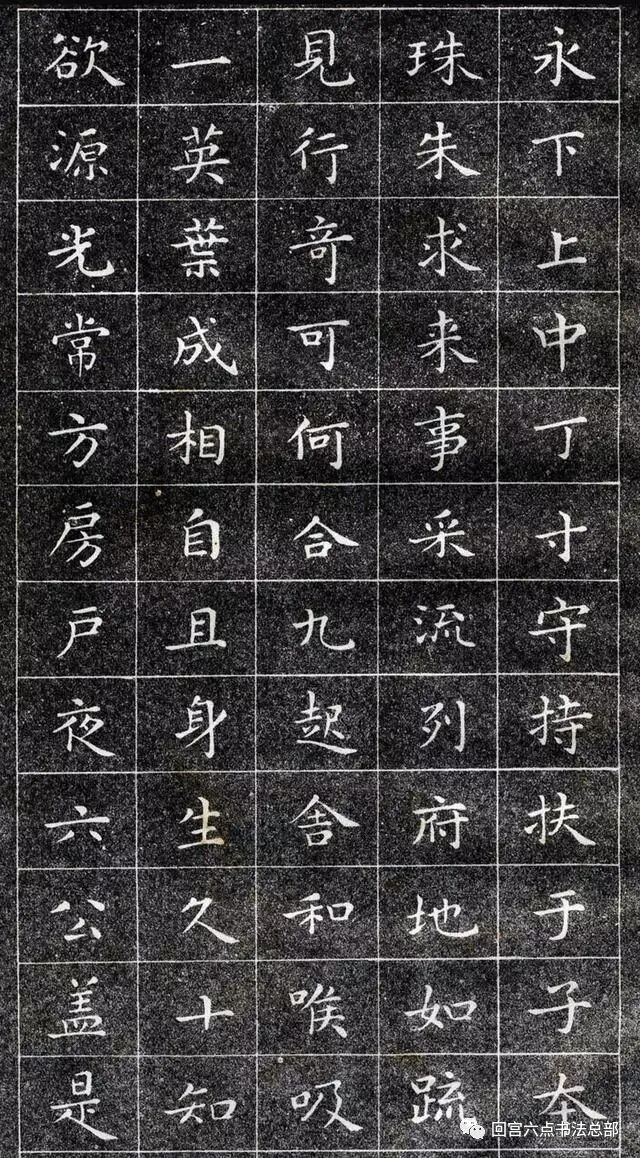 永下上中丁寸守持扶于子本
珠朱求来事采流列府地如疏
見行奇可何合九起舍和唉吸
一英葉成相自且身生久十知
欲源光常方房戶夜六公盖是
回宫六点书法总部